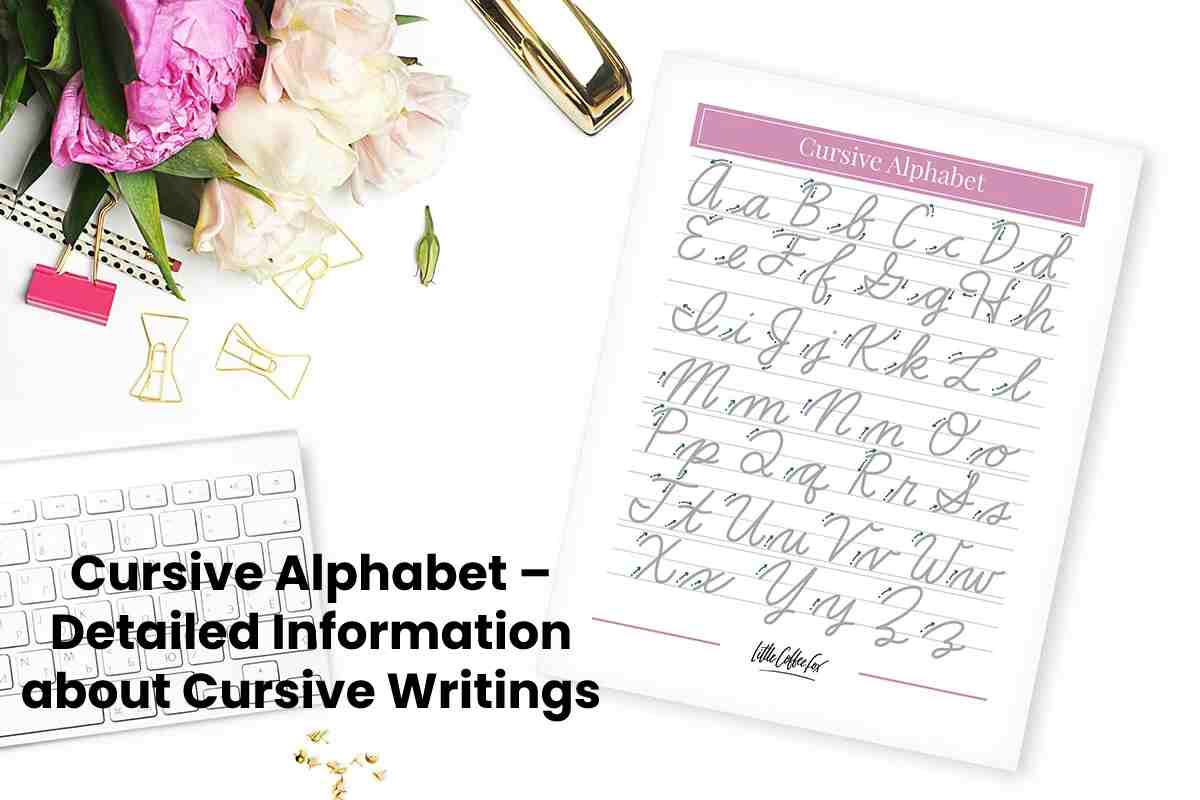 Cursive Alphabet
A a B b C c D d
E e F f G g H h
I i J j K k L l
M m N n O o
P p Q q R r S s
T t U u V v W w
X x Y y Z z
Little Coffee Fox
Cursive Alphabet –
Detailed Information
about Cursive Writings